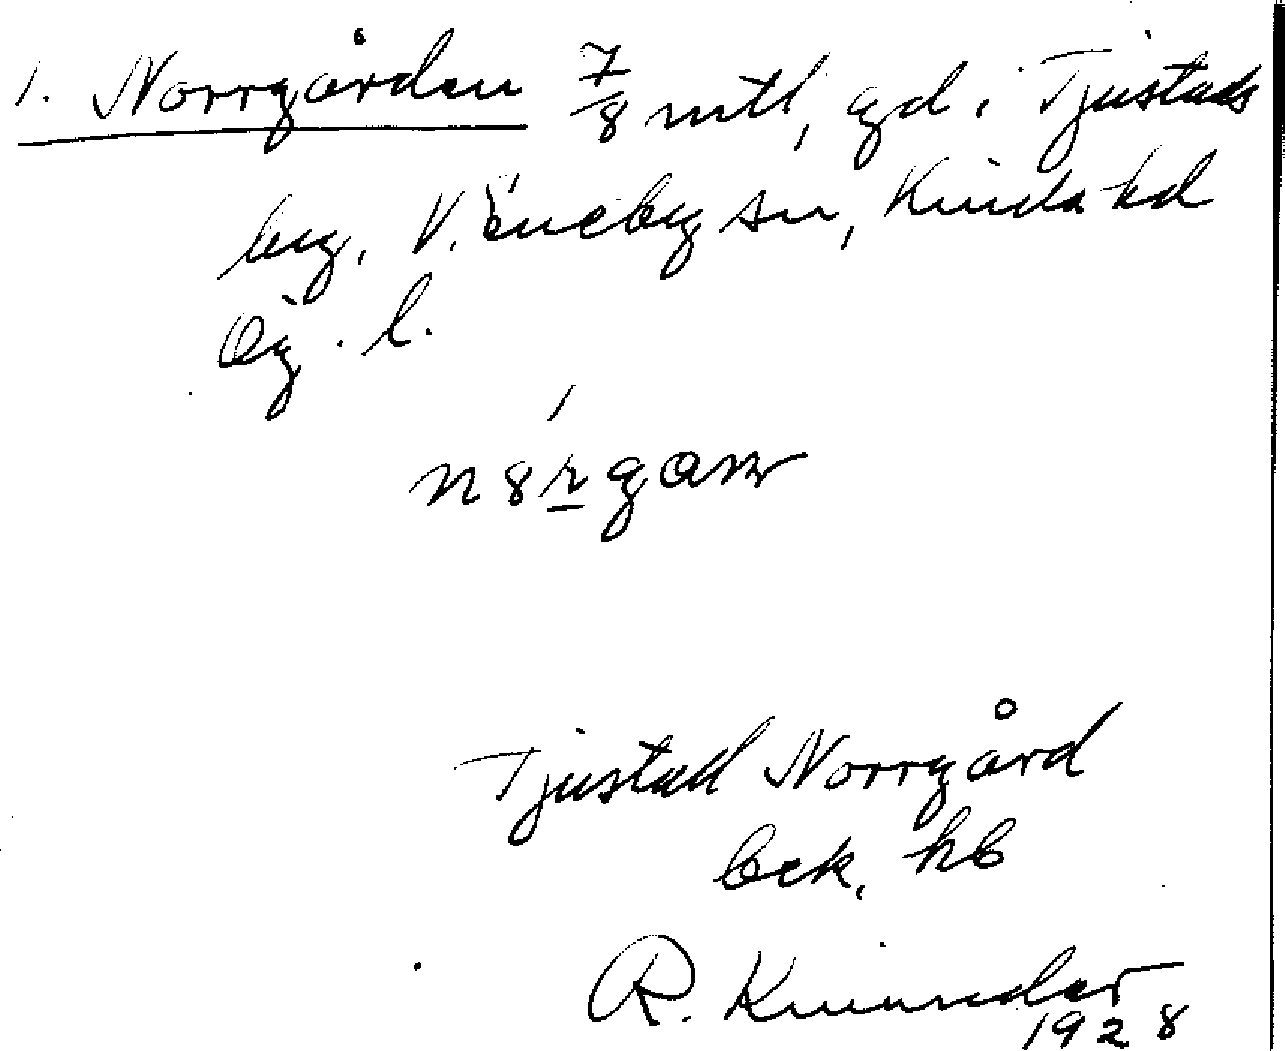 1. Norrgården 7/8 mtl, gd i Tjustads
by, V. Eneby sn, Kinda hd
Ög. l.
Tjustad Norrgård
bek, hb
R.
1928